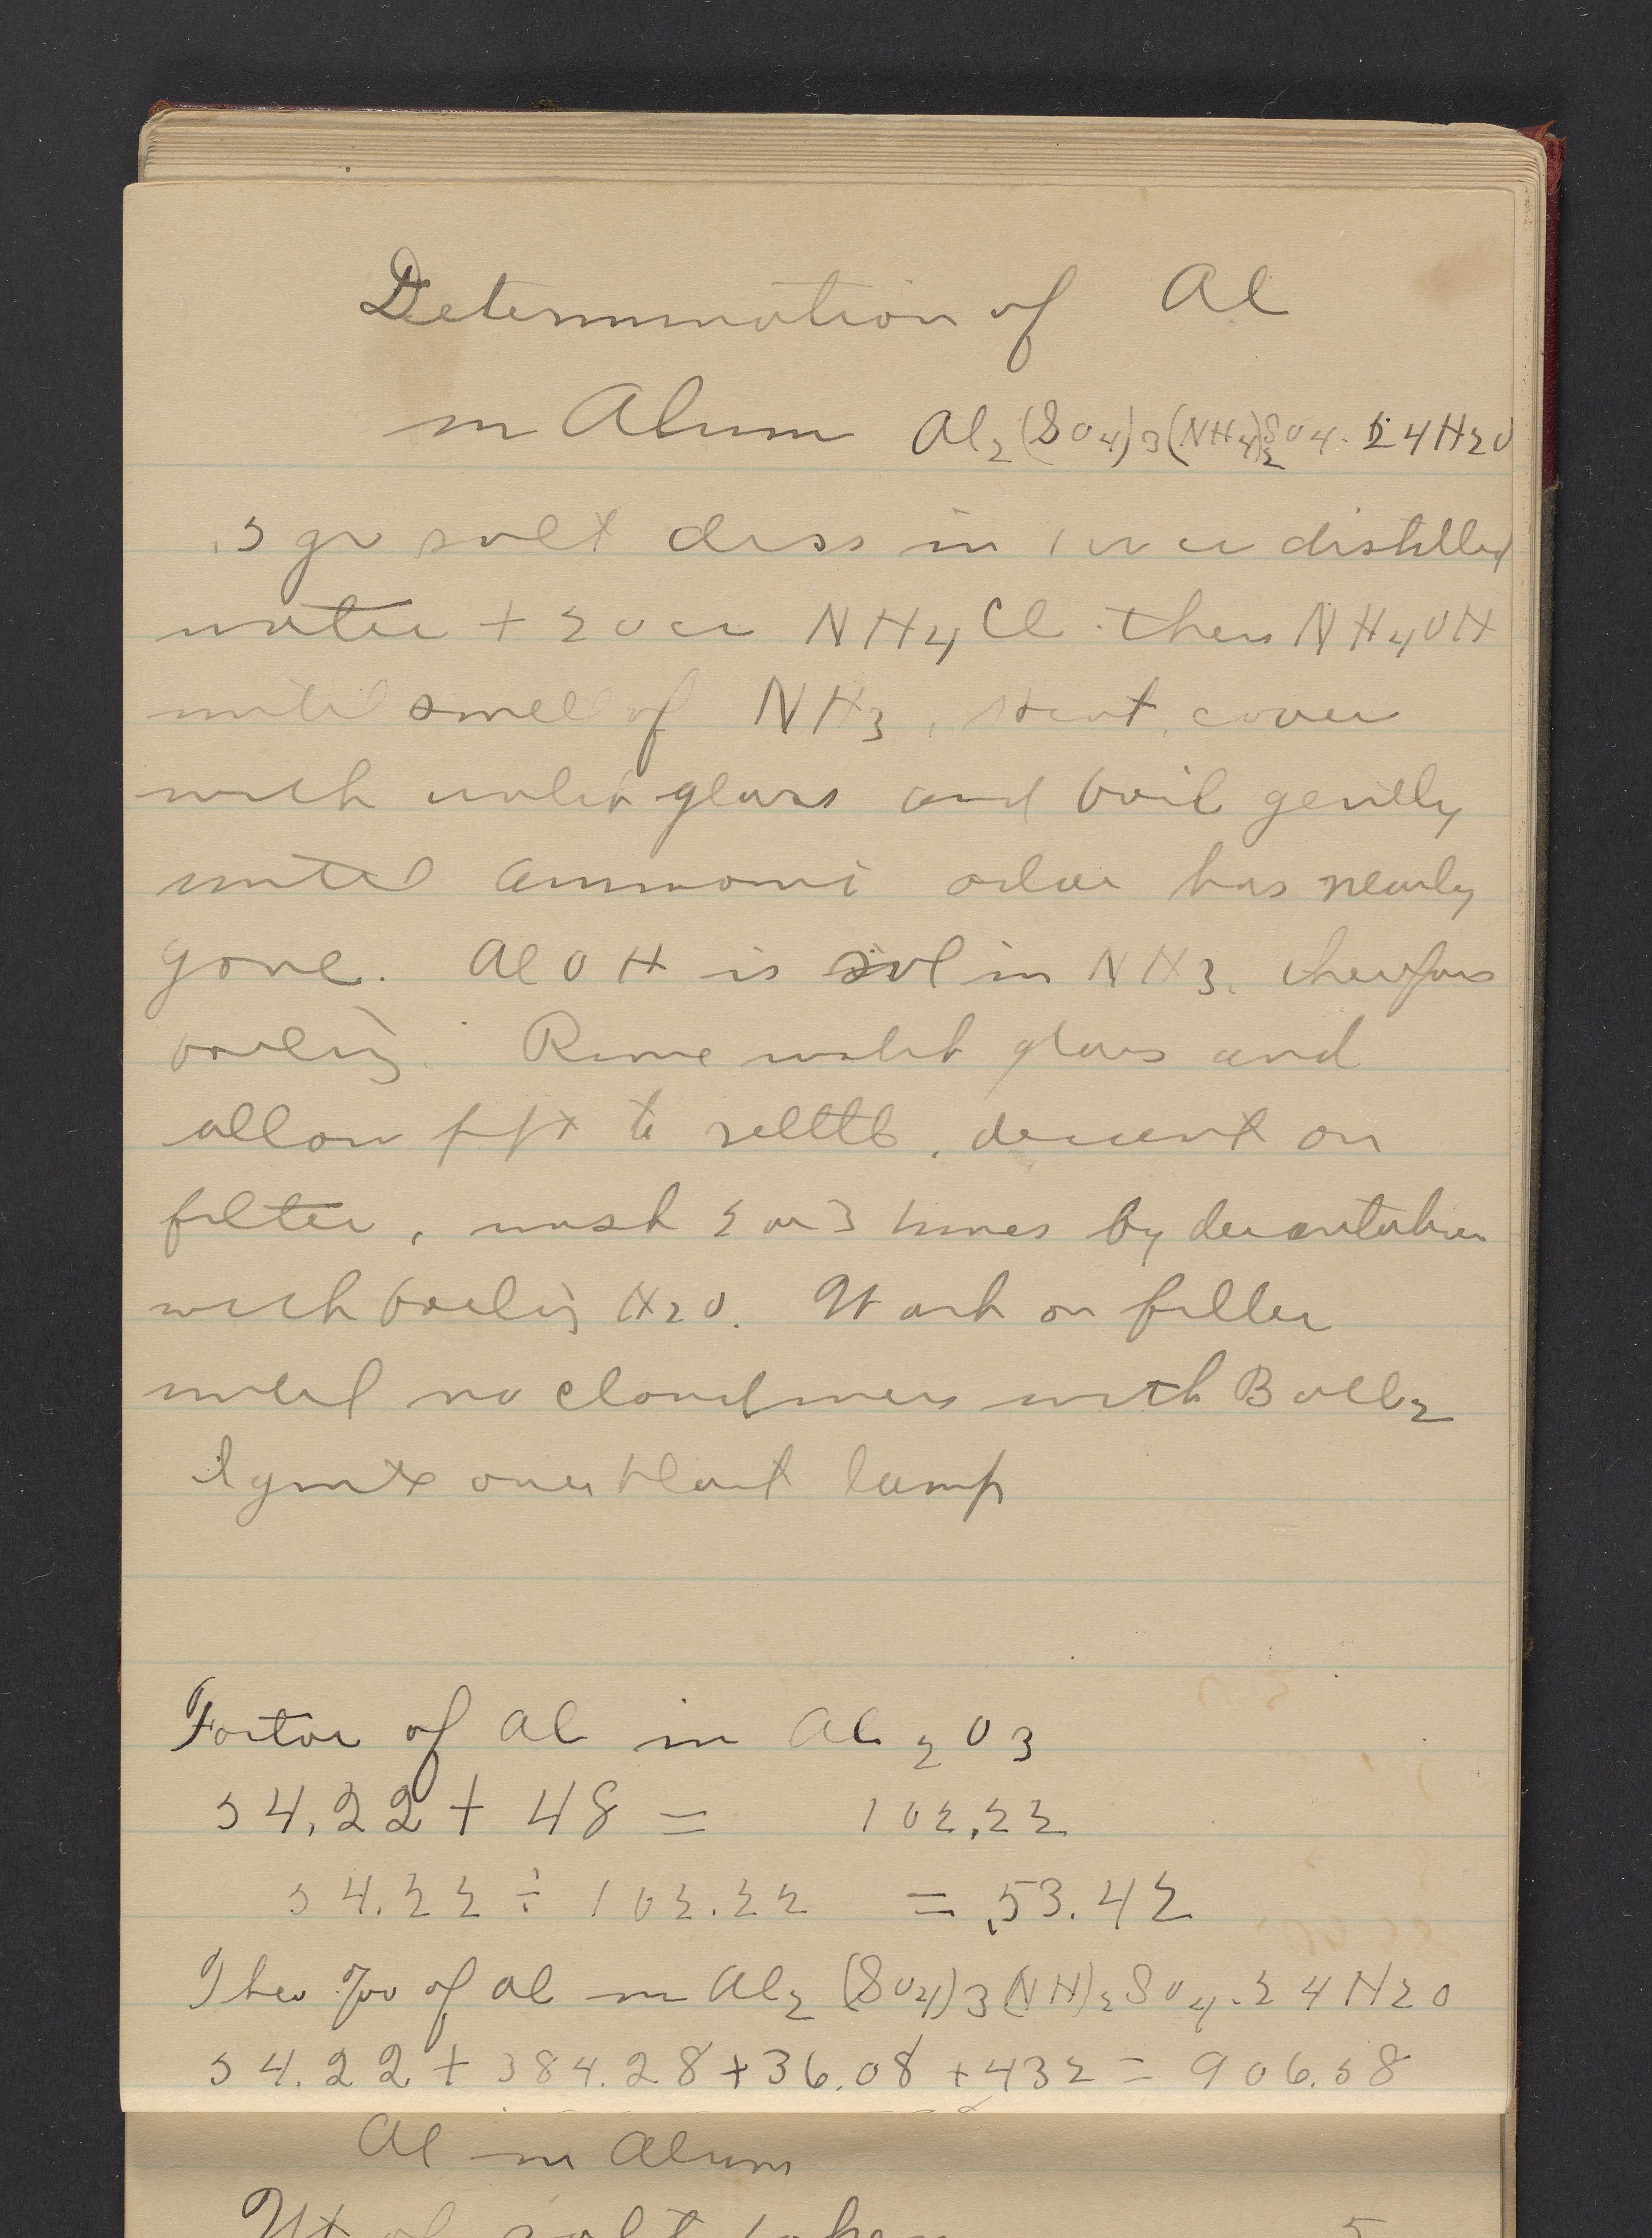 Determination of Al
in Alum Al2(SO4)3(NH4)2SO4.24H2O
.5 gr salt diss in 100 cc distilled
water + 20cc NH4Cl then NH4OH
until smell of NH3, Heat, cover
with watch glass and boil gently
until ammoni odor has nearly
gone. AlOH is sol in NH3. therefore
boiling. Rinse watch glass and
allow ppt to settle, decant on
filter, wash 2 or 3 times by decantation
with boiling H2O. Wash on filter
until no cloudiness with BaCl2
Ignite over blast lamp
Factor of Al in Al2O3
54.22 + 48 = 102.22
54.22 ÷ 102.22 = .53.42
Theo % of Al in Al2(SO4)3(NH)2SO4.24H2O
54.22 + 384.28 + 36.08 + 432 = 906.58
Al in Alum
Wt of salt taken .5